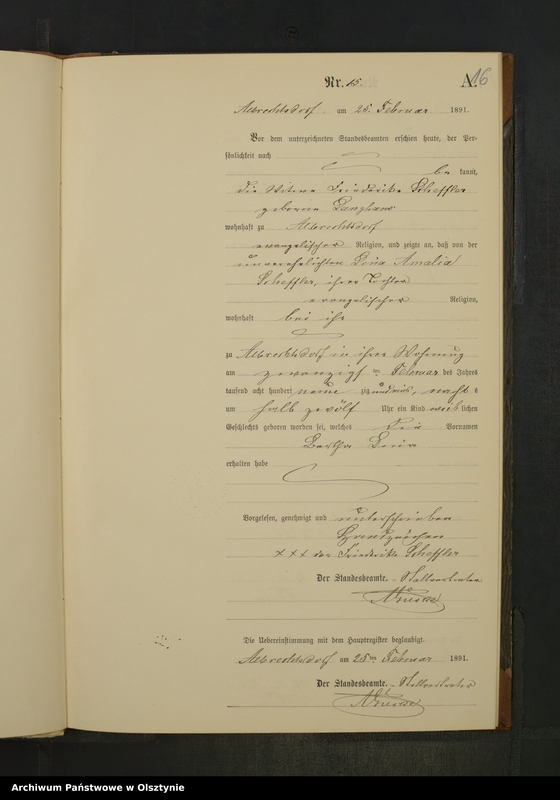 Nr. 15.
A. 16
Albrechtsdorf am 25. Februar 1891.
Vor dem unterzeichneten Standesbeamten erschien heute, der Per-
sönlichkeit nach
be kannt,
die Witwe Friederike Scheffler
geborene
wohnhaft zu Albrechtsdorf
evangelischer Religion, und zeigte an, daß von der
unverehelichten Lina Amalia
Scheffler, ihrer Tochter
evangelischer Religion,
wohnhaft bei ihr
zu Albrechtsdorf in ihrer Wohnung
am zwanzigsten Februar des Jahres
tausend acht hundert neun zig und eins, nachts
um halb zwölf Uhr ein Kind weib lichen
Geschlechts geboren worden sei, welches die Vornamen
Bertha Lina
erhalten habe
Vorgelesen, genehmigt und unterschrieben
Handzeichen
+++ der Friederike Scheffler
Der Standesbeamte.
Die Uebereinstimmung mit dem Hauptregister beglaubigt.
Albrechtsdorf am 25ten Februar 1891.
Der Standesbeamte.
Archiwum Państwowe w Olsztynie